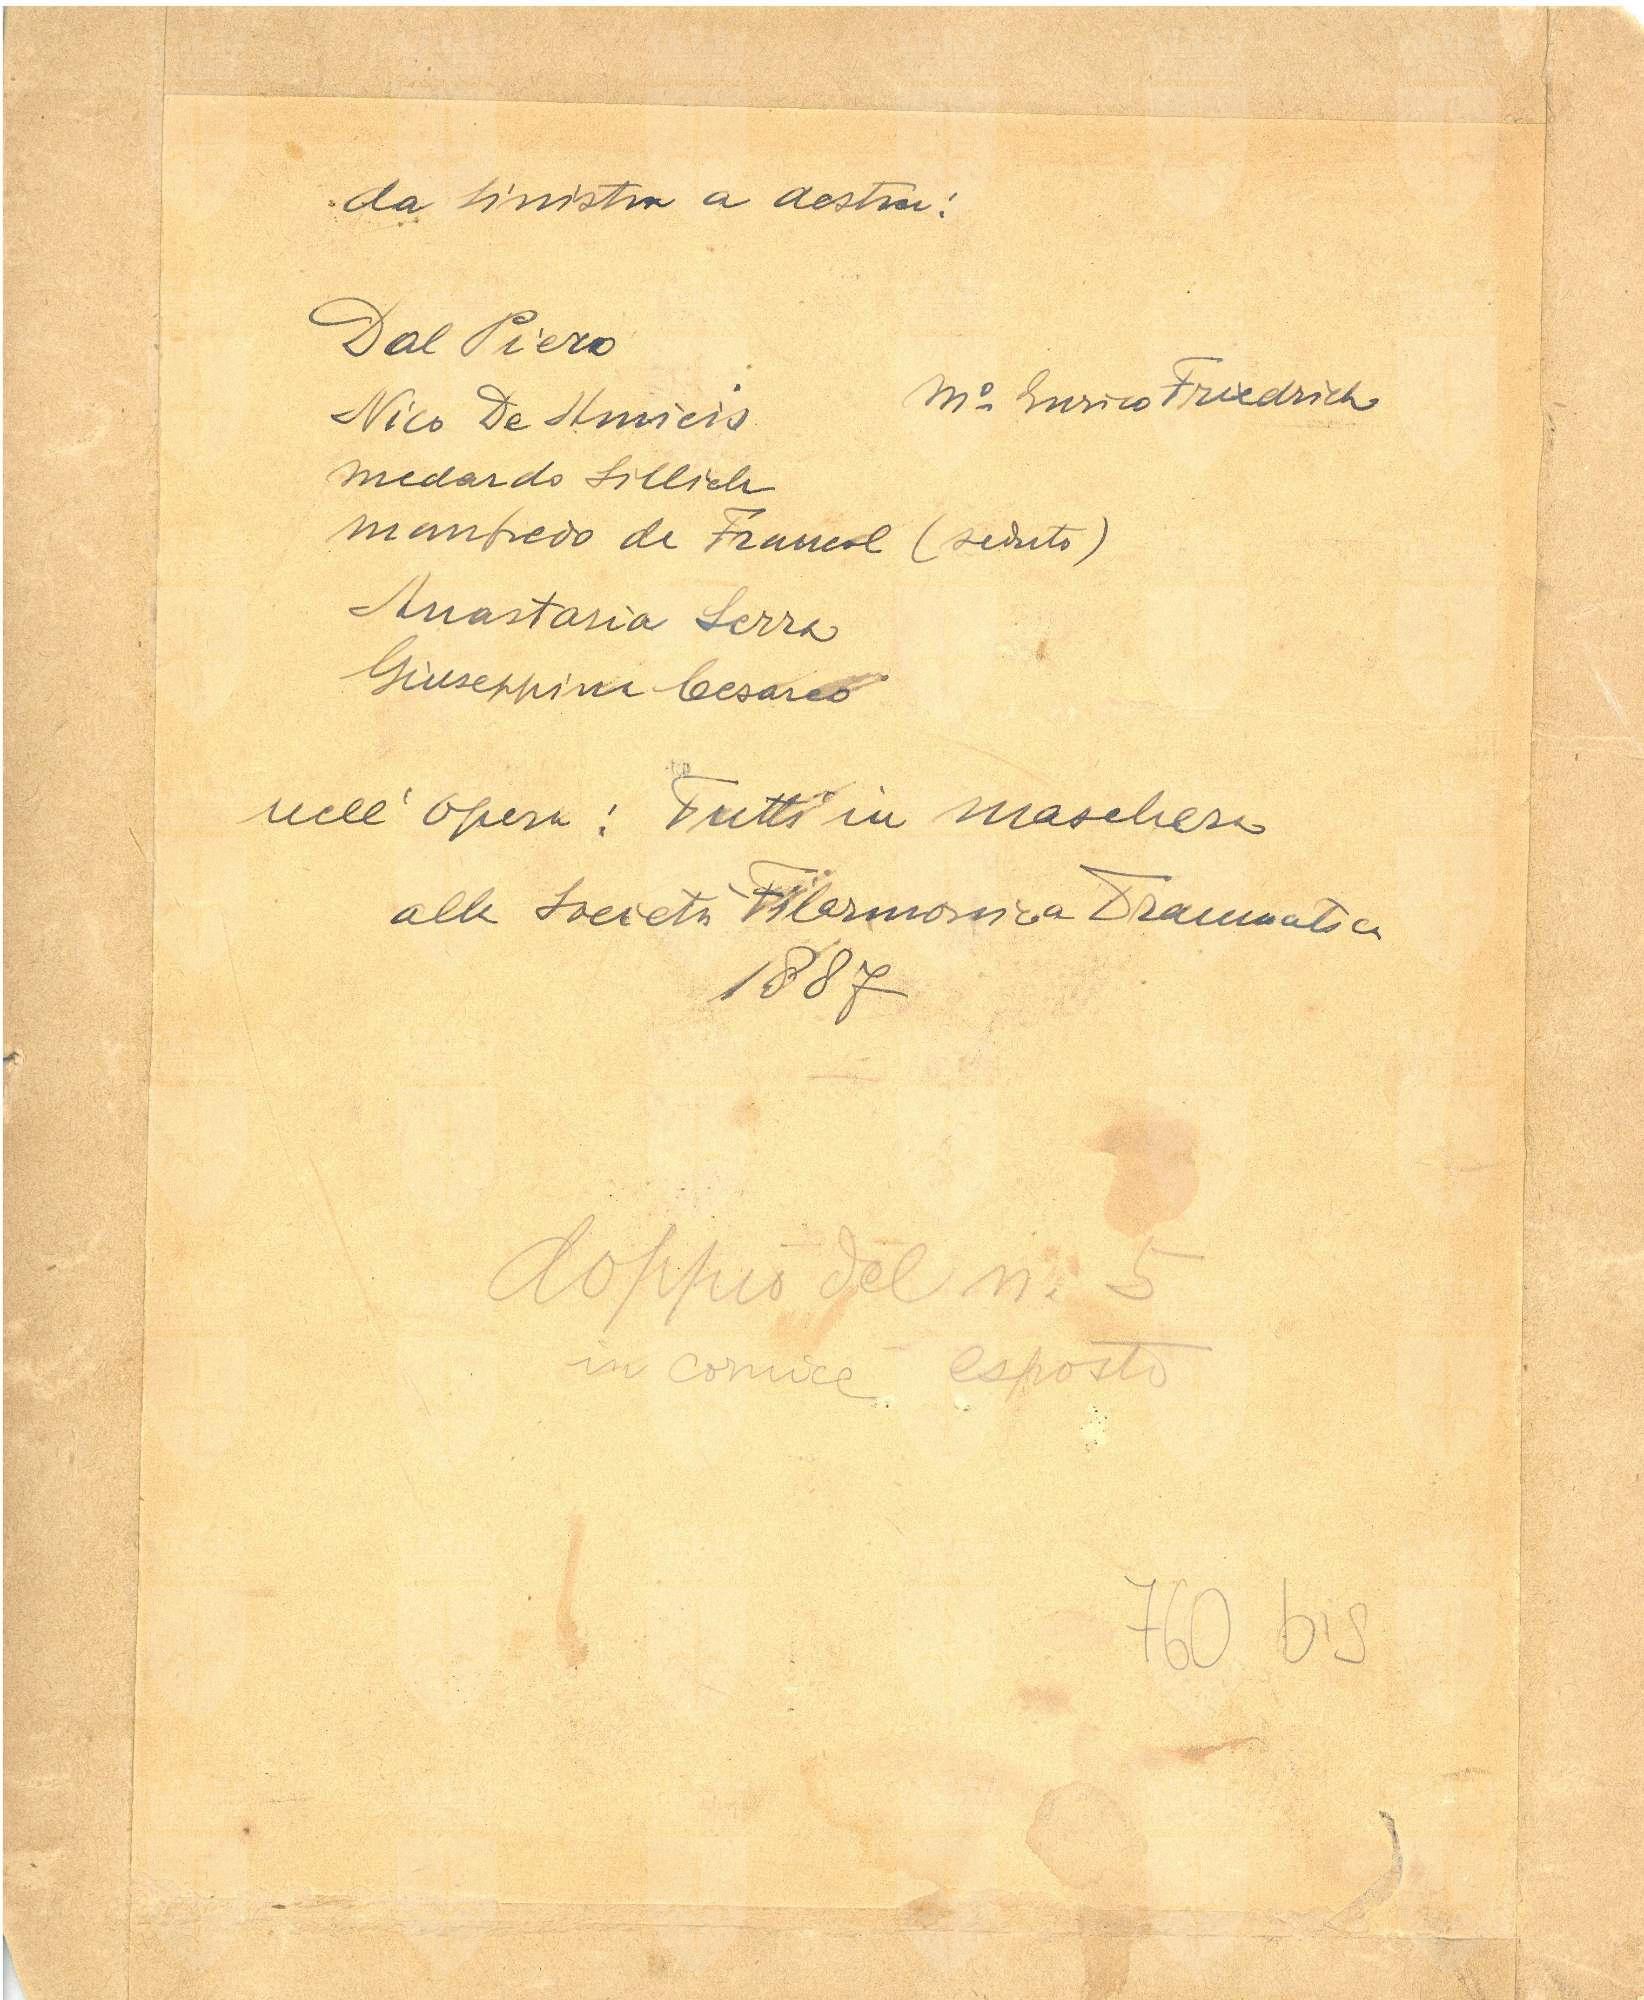 da sinistra a destra:
Dal Piero
Mº Enrico Friedrich
Nico De Amicis
Medardo Sillich
Manfredo de Franceol (seduto)
Anastasia Serra
Giuseppina Cesareo
nell' opera: Tutti in maschera
alla Società Filarmonica Drammatica
1887
doppio del n. 5
in cornice esposto
760 bis